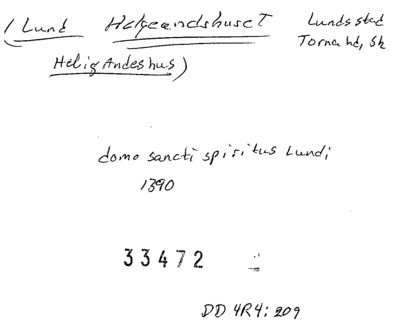 (Lund Helgeandshuset Lunds stad
Torna hd, Sk
Helig Andes hus)
domo sancti spiritus Lundi
1390
33472
DD 4R4: 209